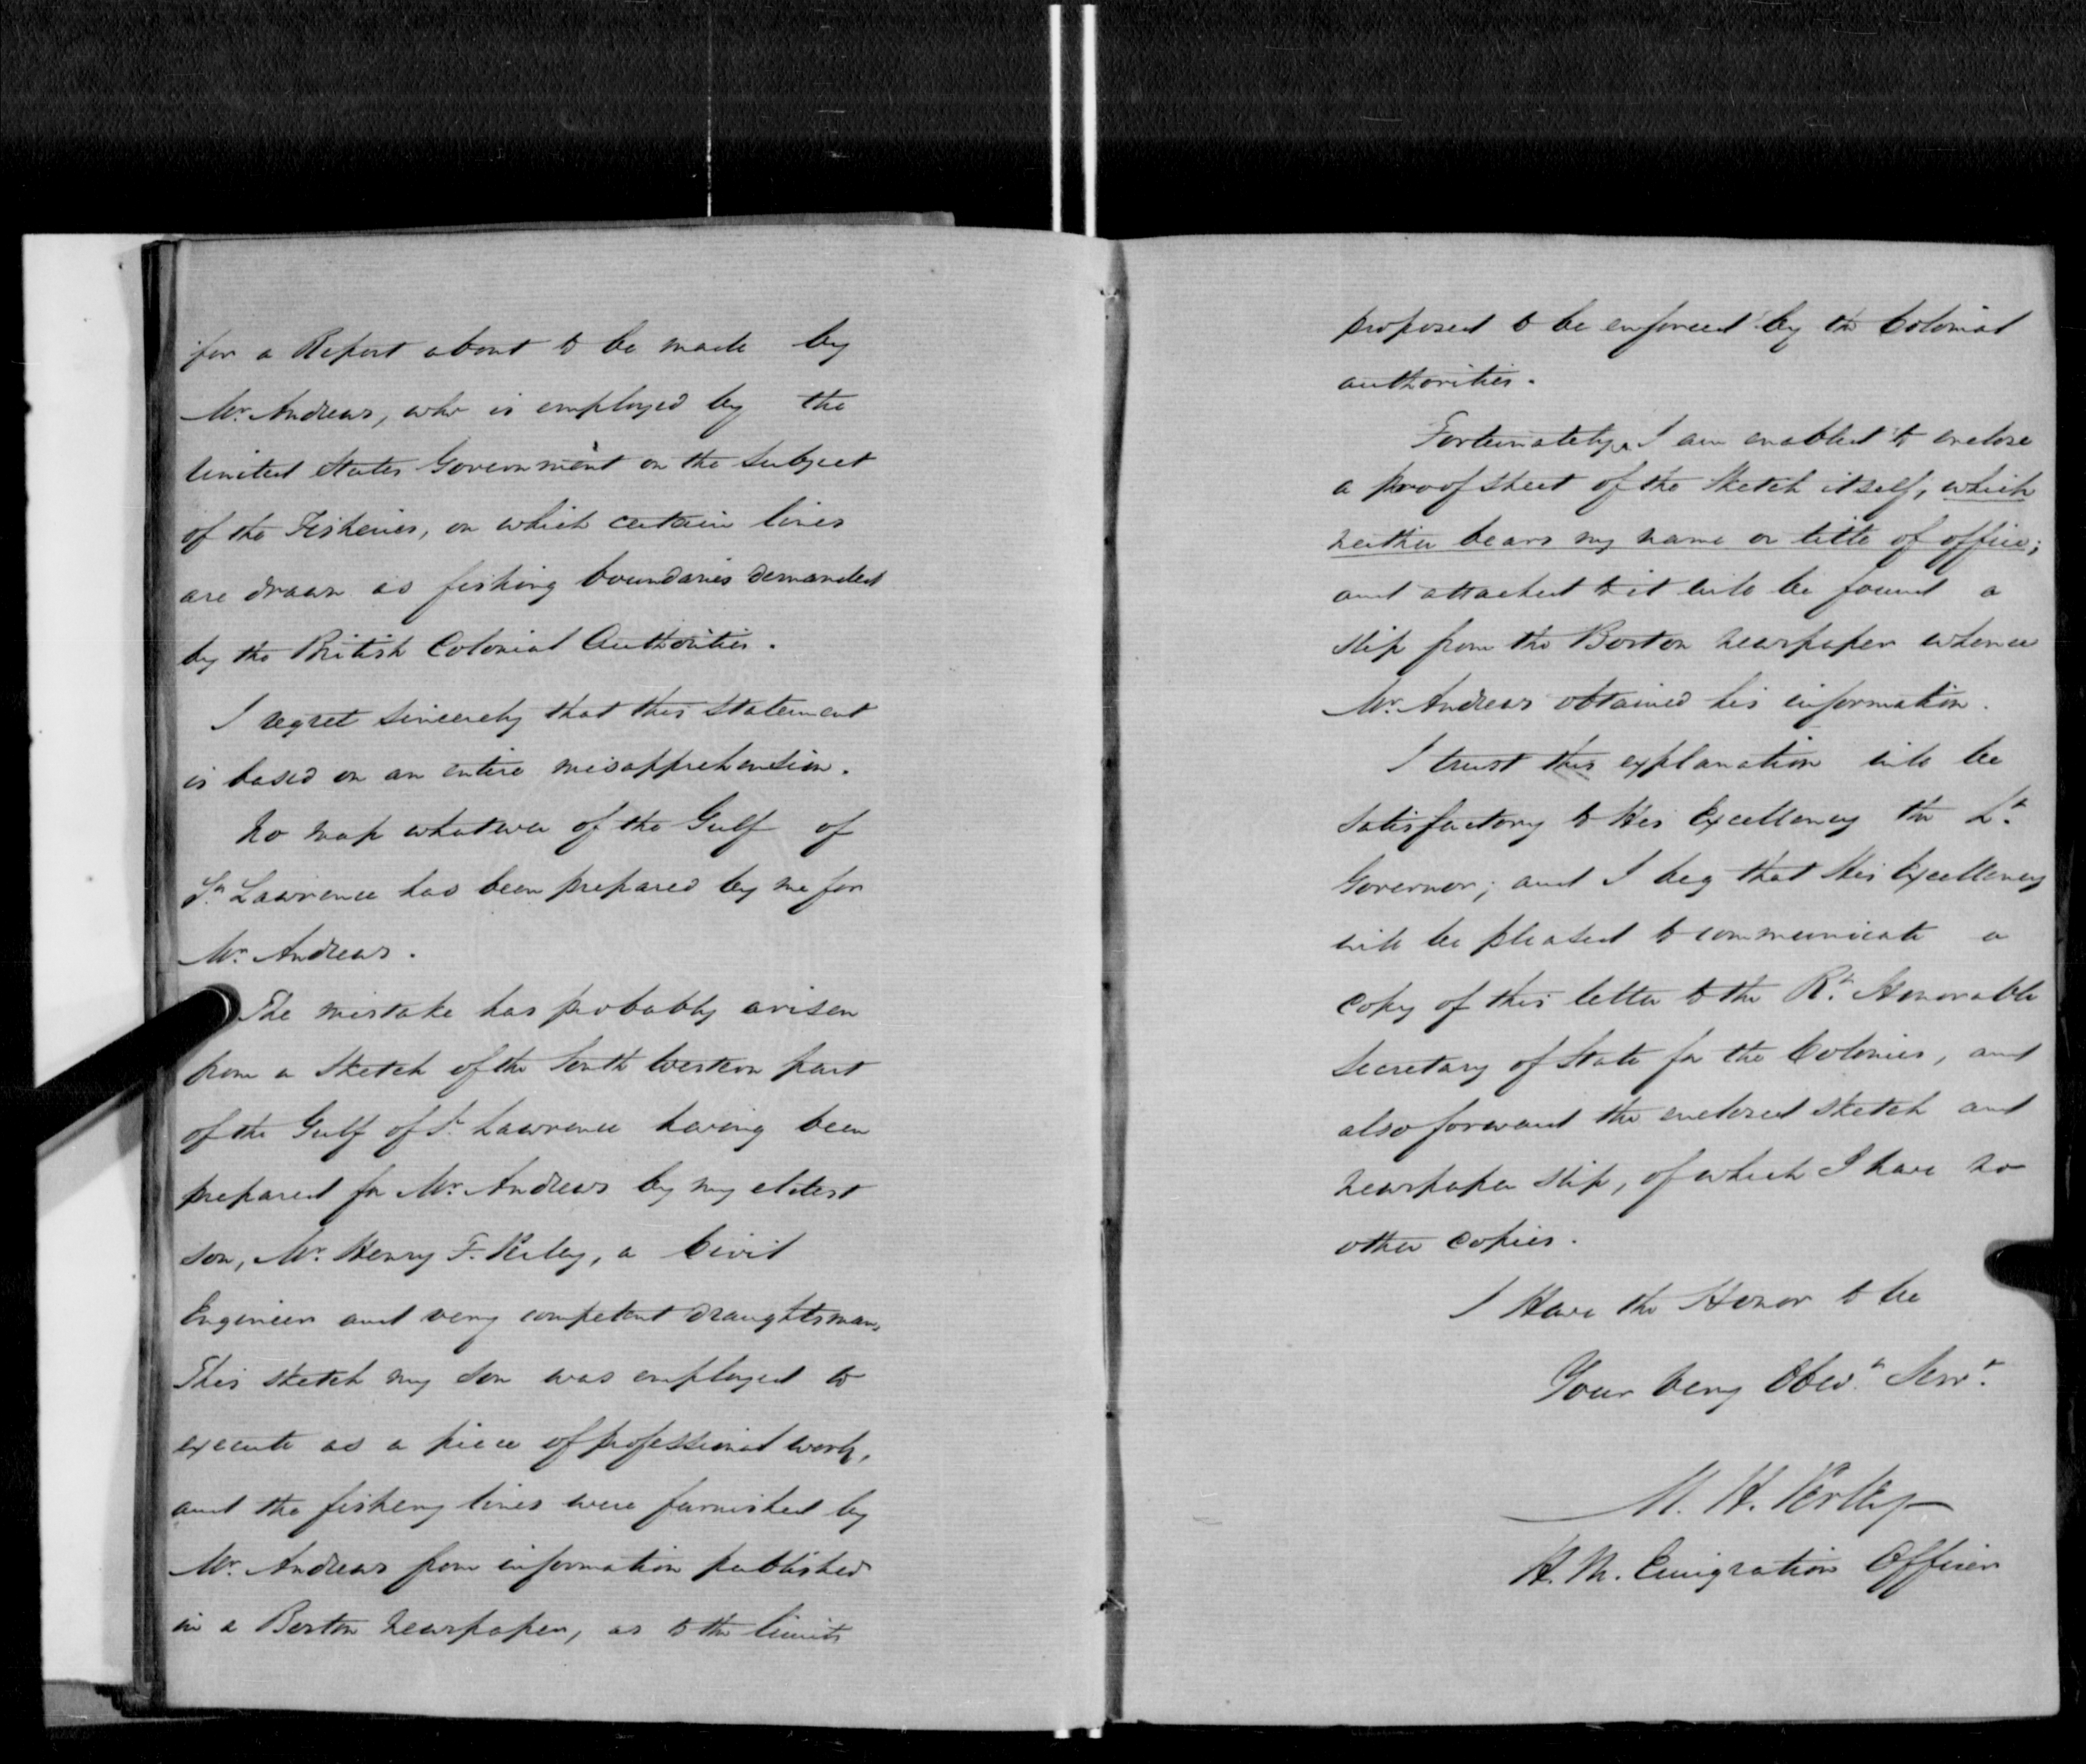 for a Report about to be made by
Mr. Andrews, who is employed by the
United States Government on the Subject
of the Fisheries, on which certain lines
are drawn as fishing boundaries demanded
by the British Colonial Authorities.
I regret sincerely that this statement
is based on an entire misapprehension.
No map whatever of the Gulf of
St. Lawrence has been prepared by me for
Mr. Andrews.
The mistake has probably arisen
from a Sketch of the South Western part
of the Gulf of St. Lawrence having been
prepared for Mr. Andrews by my eldest
son, Mr. Henry F. Perley, a Civil
Engineer and very competent draughtsman.
This sketch my son was employed to
execute as a piece of professional work,
and the fishery lines were furnished by
Mr. Andrews from information published
in a Boston newspaper, as to the limits
proposed to be enforced by the Colonial
authorities.
Fortunately, I am enabled to enclose
a proof sheet of the Sketch itself, which
neither bears my name or title of office;
and attached to it will be found a
slip from the Boston newspaper whence
Mr. Andrews obtained his information.
I trust this explanation will be
satisfactory to His Excellency the Lt.
Governor; and I beg that His Excellency
will be pleased to communicate a
copy of this letter to the Rt. Honorable
Secretary of State for the Colonies, and
also forward the enclosed sketch and
newspaper slip, of which I have no
other copies.
I Have the Honor to be
Your very Obedt. Servt.
M. H. Perley
H. M. Emigration Officer